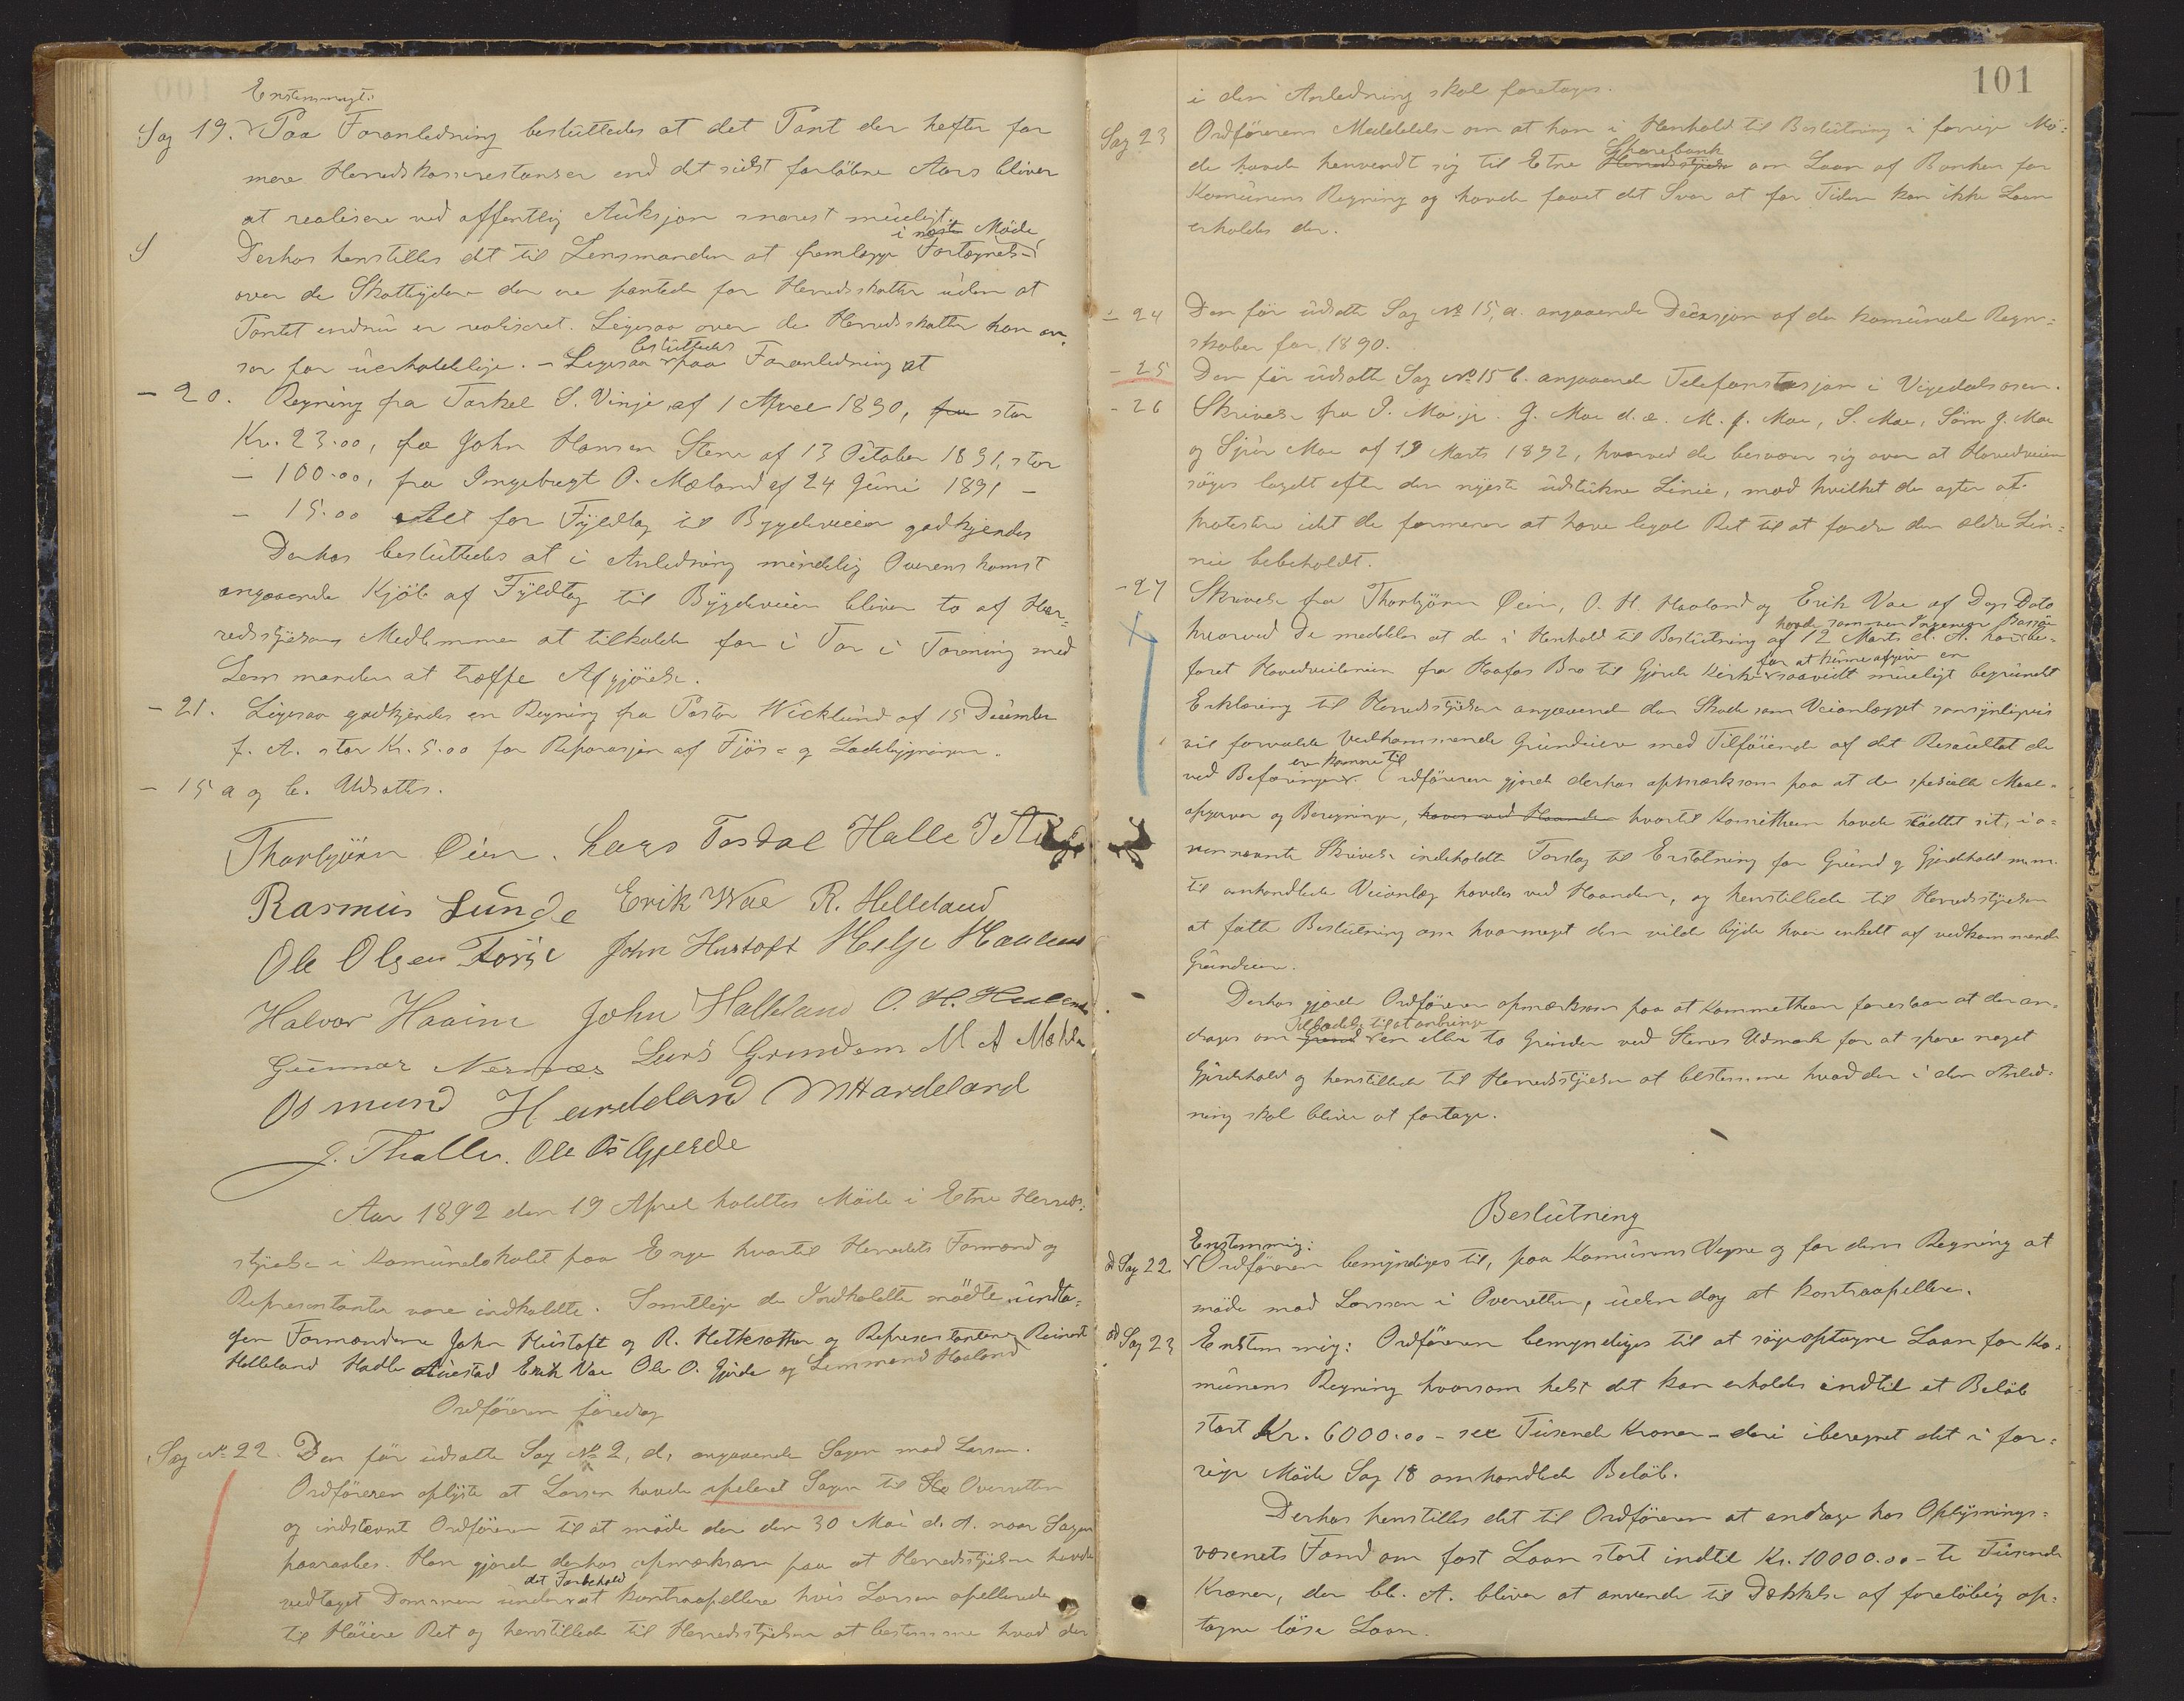 Enstemmigt:
Sag 19. Paa Foranledning besluttedes at det Pant der hefter for
mere Herredskasserestanser end det sidst forløbne Aars bliver
at realisere ved offentlig Auksjon snarest mueligt.
i næste Møde
Derhos henstilles det til Lensmanden at fremlægge Fortegnelse
over de Skatteydere der ere pantede for Herredsskatter uden at
Pantet endnu er realiseret. Ligesaa over de Herredsskatter han an-
besluttedes
ser for uerholdelige. – Ligesaa paa Foranledning at
– 20. Regning fra Torkel S. Vinje, af 1 April 1890, fra stor
Kr. 23.00, fra John Hansen Stene af 13 Oktober 1891, stor
– 100.00, fra Ingebregt O. Mæland af 24 Juni 1891 –
– 15.00 Alt for Fyldtag til Bygdeveien godkjendes
Derhos besluttedes at i Anledning mindelig Overenskomst
angaaende Kjøb af Fyldtag til Bygdeveien bliver to af Her-
redsstyrelsens Medlemmer at tilkalde for i Tor i Forening med
Lensmanden at træffe Afgjørelse.
– 21. Ligesaa godkjendes en Regning fra Pastor Wicklund af 15 December
f. A. stor Kr. 5.00 for Reparasjon af Fjøs- og Ladebygninger.
– 15 a og b. Udsattes.
Thorbjørn Øien. Lars Tesdal Halle
Rasmus Lunde Erik Vae R. Helleland
Ole Olsen John Hustoft Helje Haaland
Halvor Haaim John Halleland O. H. Haaland
Gunnar Nernæs Lars Grindem M A Mæhle
Osmund Hardeland M Hardeland
J. Thalle. Ole Os Gjerde
Aar 1892 den 19 April holdtes Møde i Etne Herreds-
styrelse i Komunelokalet paa Enge hvortil Herredets Formænd og
Representanter vare indkaldte. Samtlige de Indkaldte mødte undta-
gen Formændene John Hustoft og R. Hetlesæther og Representanterne Reinert
Helleland Hadle Austad Erik Vae Ole O. Gjerde og Lensmand Haaland
Ordføreren foredrog
Sag No 22. Den før udsatte Sag No 2, d, angaaende Sagen mod Larsen.
Ordføreren oplyste at Larsen havde apeleret Sagen til Overretten
og indstevnt Ordføreren til at møde der den 30 Mai d. A. naar Sagen
paaraabes. Han gjorde derhos opmærksom paa at Herredsstyrelsen havde
det Forbehold
vedtaget Dommen under at kontraapellere hvis Larsen apellerede
til Høiere Ret og henstillede til Herredsstyrelsen at bestemme hvad der
101
i den Anledning skal foretages.
Sag 23 Ordførerens Meddelelse om at han i Henhold til Beslutning i forrige Mø-
Sparebank
de havde henvendt sig til Etne Herredsstyrelse om Laan af Banken for
Komunens Regning og havde faaet det Svar at for Tiden kan ikke Laan
erholdes der.
– 24 Den før udsatte Sag No 15, a. angaaende Decisjon af de komunale Regn-
skaber for 1890.
– 25 Den før udsatte Sag No 15 b. angaaende Telefonstasjon i Vigedalsosen.
– 26 Skrivelse fra P. Moe jr. G. Moe d.æ. M. J. Moe, S. Moe, Sørn G. Moe
og Sjur Moe af 19 Marts 1892, hvorved de besværer sig over at Hovedveien
søges lagdt efter den nyeste udstukne Linie, mod hvilket de agter at
protestere idet de formener at have legal Ret til at fordre den ældre Lin-
nie bebeholdt.
– 27 Skrivelse fra Thorbjørn Øien, O. H. Haaland og Erik Vae af Dags Dato
havde sammen Ingeniør
hvorved De meddeler at de i Henhold til Beslutning af 12 Marts d. A. har be-
for at kunne afgive en
faret Hovedveilinien fra Haafos Bro til Gjerde Kirke saavidt mueligt begrundet
Erklæring til Herredsstyrelsen angaaende den Skade som Veianlægget sansynligvis
vil forvolde Vedkommende Grundeiere med Tilføiende af det Resultat de
ere komne til
ved Befaringen. Ordføreren gjorde derhos opmærksom paa at de spesielle Maal-
opgaver og Beregninger, haves ved Haanden hvortil Komitheen havde støttet sit, i o-
vennævnte Skrivelse indeholdte Forslag til Erstatning for Grund og Gjerdehold m.m.
til omhandlede Veianlæg havdes ved Haanden, og henstillede til Herredsstyrelsen
at fatte Beslutning om hvormeget den vilde byde hver enkelt af vedkommende
Grundeiere.
Derhos gjorde Ordføreren opmærksom paa at Kommetheen foreslaar at der an-
Tilladelse til at anbringe
drages om Grund en eller to Grinder ved Stenes Udmark for at spare noget
Gjerdehold og henstillede til Herredsstyrelsen at bestemme hvad der i den Anled-
ning skal bliver at fortage.
Beslutning
Enstemmig:
ad Sag 22. Ordføreren bemyndiges til, paa Komunens Vegne og for dens Regning at
møde mod Larsen i Overretten, uden dog at kontraapellere.
ad Sag 23 Enstemmig: Ordføreren bemyndiges til at søge optagne Laan for Ko-
munens Regning hvorsom helst det kan erholdes indtil et Beløb
stort Kr. 6000.00 – sex Tusende Kroner – deri iberegnet det i for-
rige Møde Sag 18 omhandlede Beløb.
Derhos henstilles det til Ordføreren at andrage hos Oplysnings-
væsenets Fond om fast Laan stort indtil Kr. 10000.00 – ti Tusende
Kroner, der bl. A. bliver at anvende til Dækkelse af foreløbig op-
tagne løse Laan.